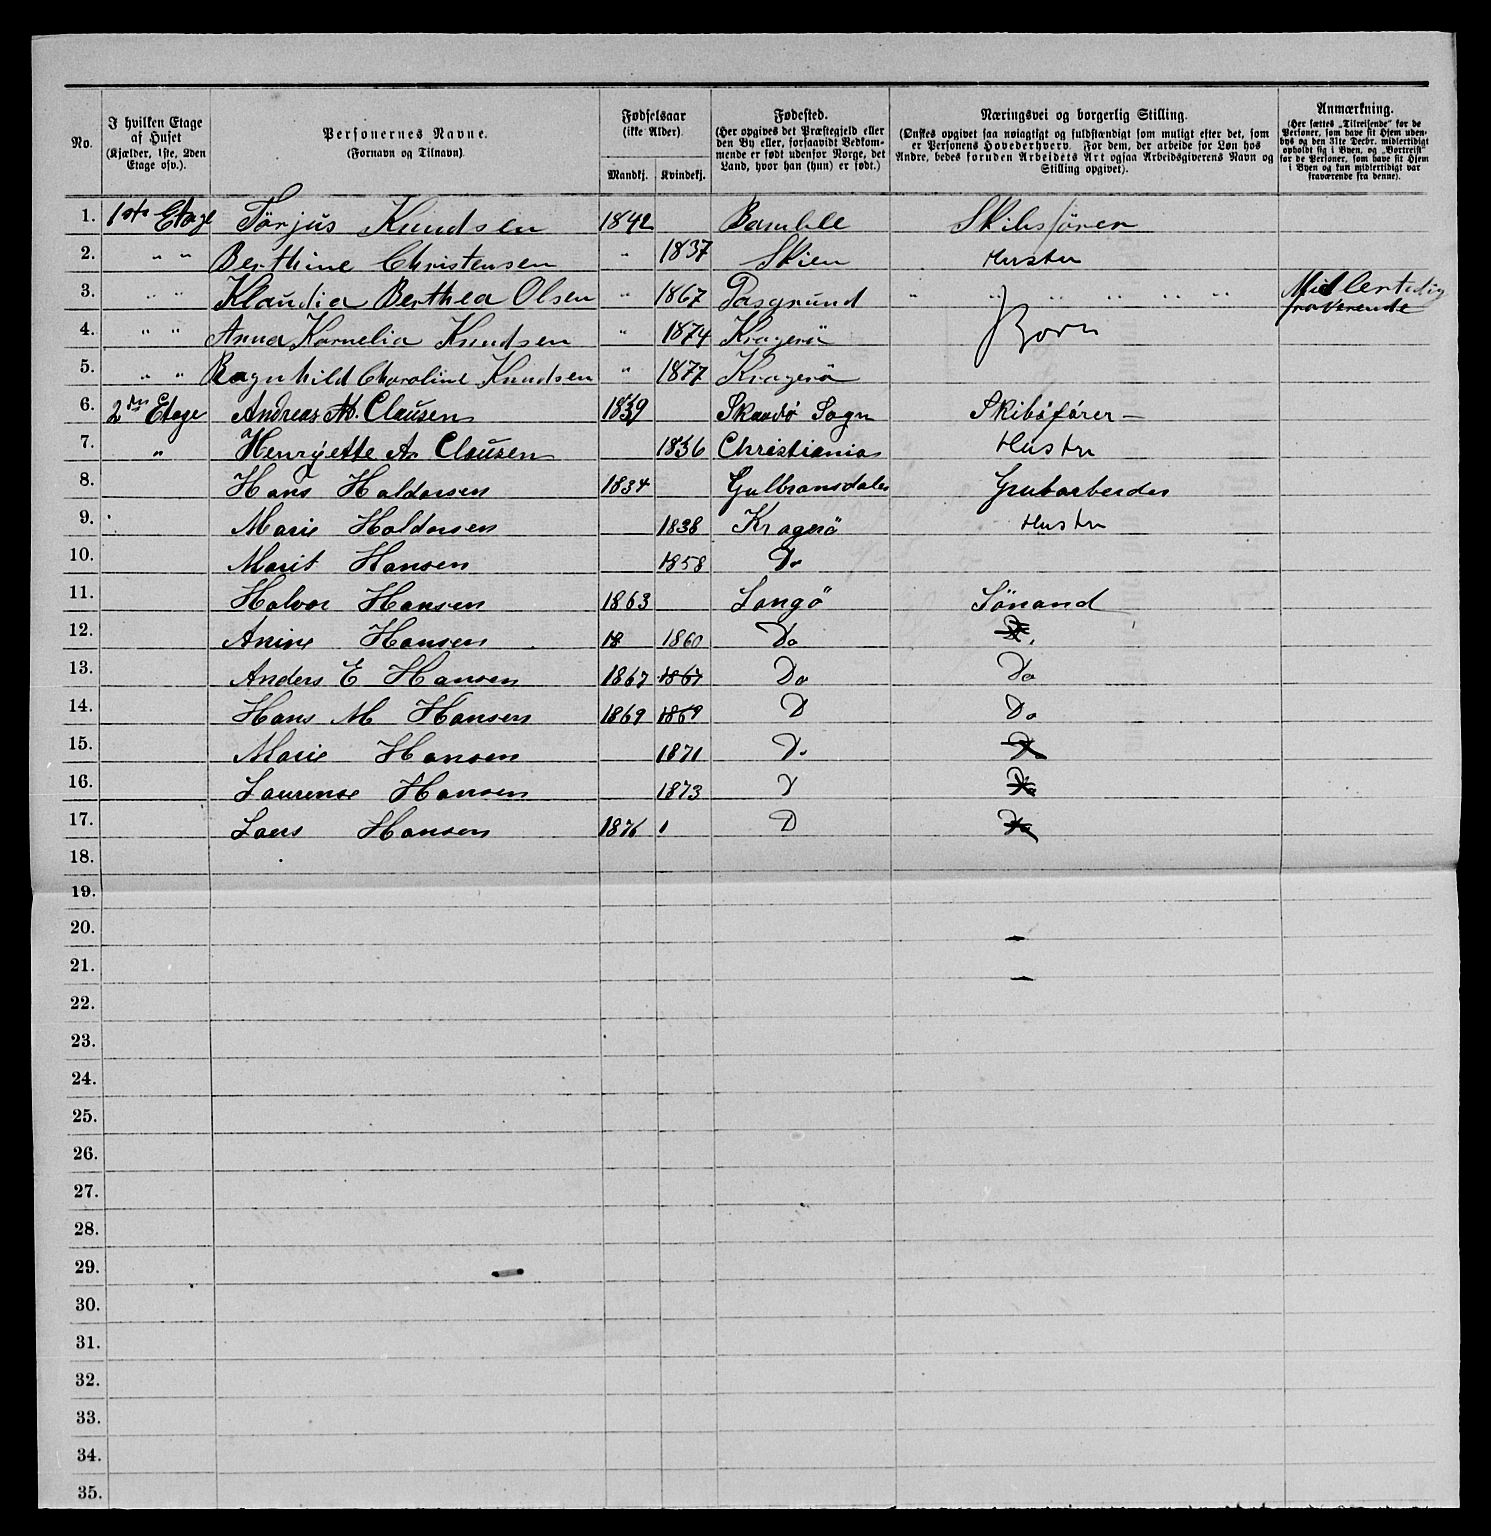 No.
I hvilken Etage af Huset (Kjælder, 1ste, 2den Etage osv.).
Personernes Navne. (Fornavn og Tilnavn).
Fødselsaar (ikke Alder). Mandkj. Kvindekj.
Fødested. (Her opgives det Præstegjeld eller den By eller, forsaavidt Vedkommende er født udenfor Norge, det Land, hvor han (hun) er født.)
Næringsvei og borgerlig Stilling. (Ønskes opgivet saa nøiagtigt og fuldstændigt som muligt efter det, som er Personens Hovederhverv. For dem, der arbeide for Løn hos Andre, bedes foruden Arbeidets Art ogsaa Arbeidsgiverens Navn og Stilling opgivet).
Anmærkning. (Her sættes „Tilreisende“ for de Personer, som have sit Hjem udenbys og den 31te Decbr. midlertidigt opholdt sig i Byen, og „Bortreist“ for de Personer, som have sit Hjem i Byen og kun midlertidigt var fraværende fra denne).
1. 1ste Etage Tørjus Knudsen 1842 Bamble Skibsfører
2. " " Berthine Christensen " 1837 Skien Hustru
3. " " Klaudia Berthea Olsen " 1867 Posgrund " " " " " " Midlertidig fraverende
4. " " Anna Kornelia Knudsen " 1874 Kragerö Børn
5. " " Ragnhild Charoline Knudsen " 1877 Kragerö
6. 2den Etage Andreas M. Clausen 1839 Skaadö Sogn Skibsfører –
7. " Henryette A. Clausen 1836 Christiania Hustru
8. Hans Haldorsen 1834 Gulbransdalen Grubarbeider
9. Marie Haldorsen 1838 Kragerö Hustru
10. Marit Hansen 1858 Do
11. Halvor Hansen 1863 Langö Sömand
12. Anine Hansen 18 1860 Do Do.
13. Anders E Hansen 1867 1867 Do Do
14. Hans M Hansen 1869 1869 D Do
15. Marie Hansen 1871 D. Do
16. Laurense Hansen 1873 D Do
17. Lars Hansen 1876 D Do
18.
19.
20.
21.
22.
23.
24.
25.
26.
27.
28.
29.
30.
31.
32.
33.
34.
35.